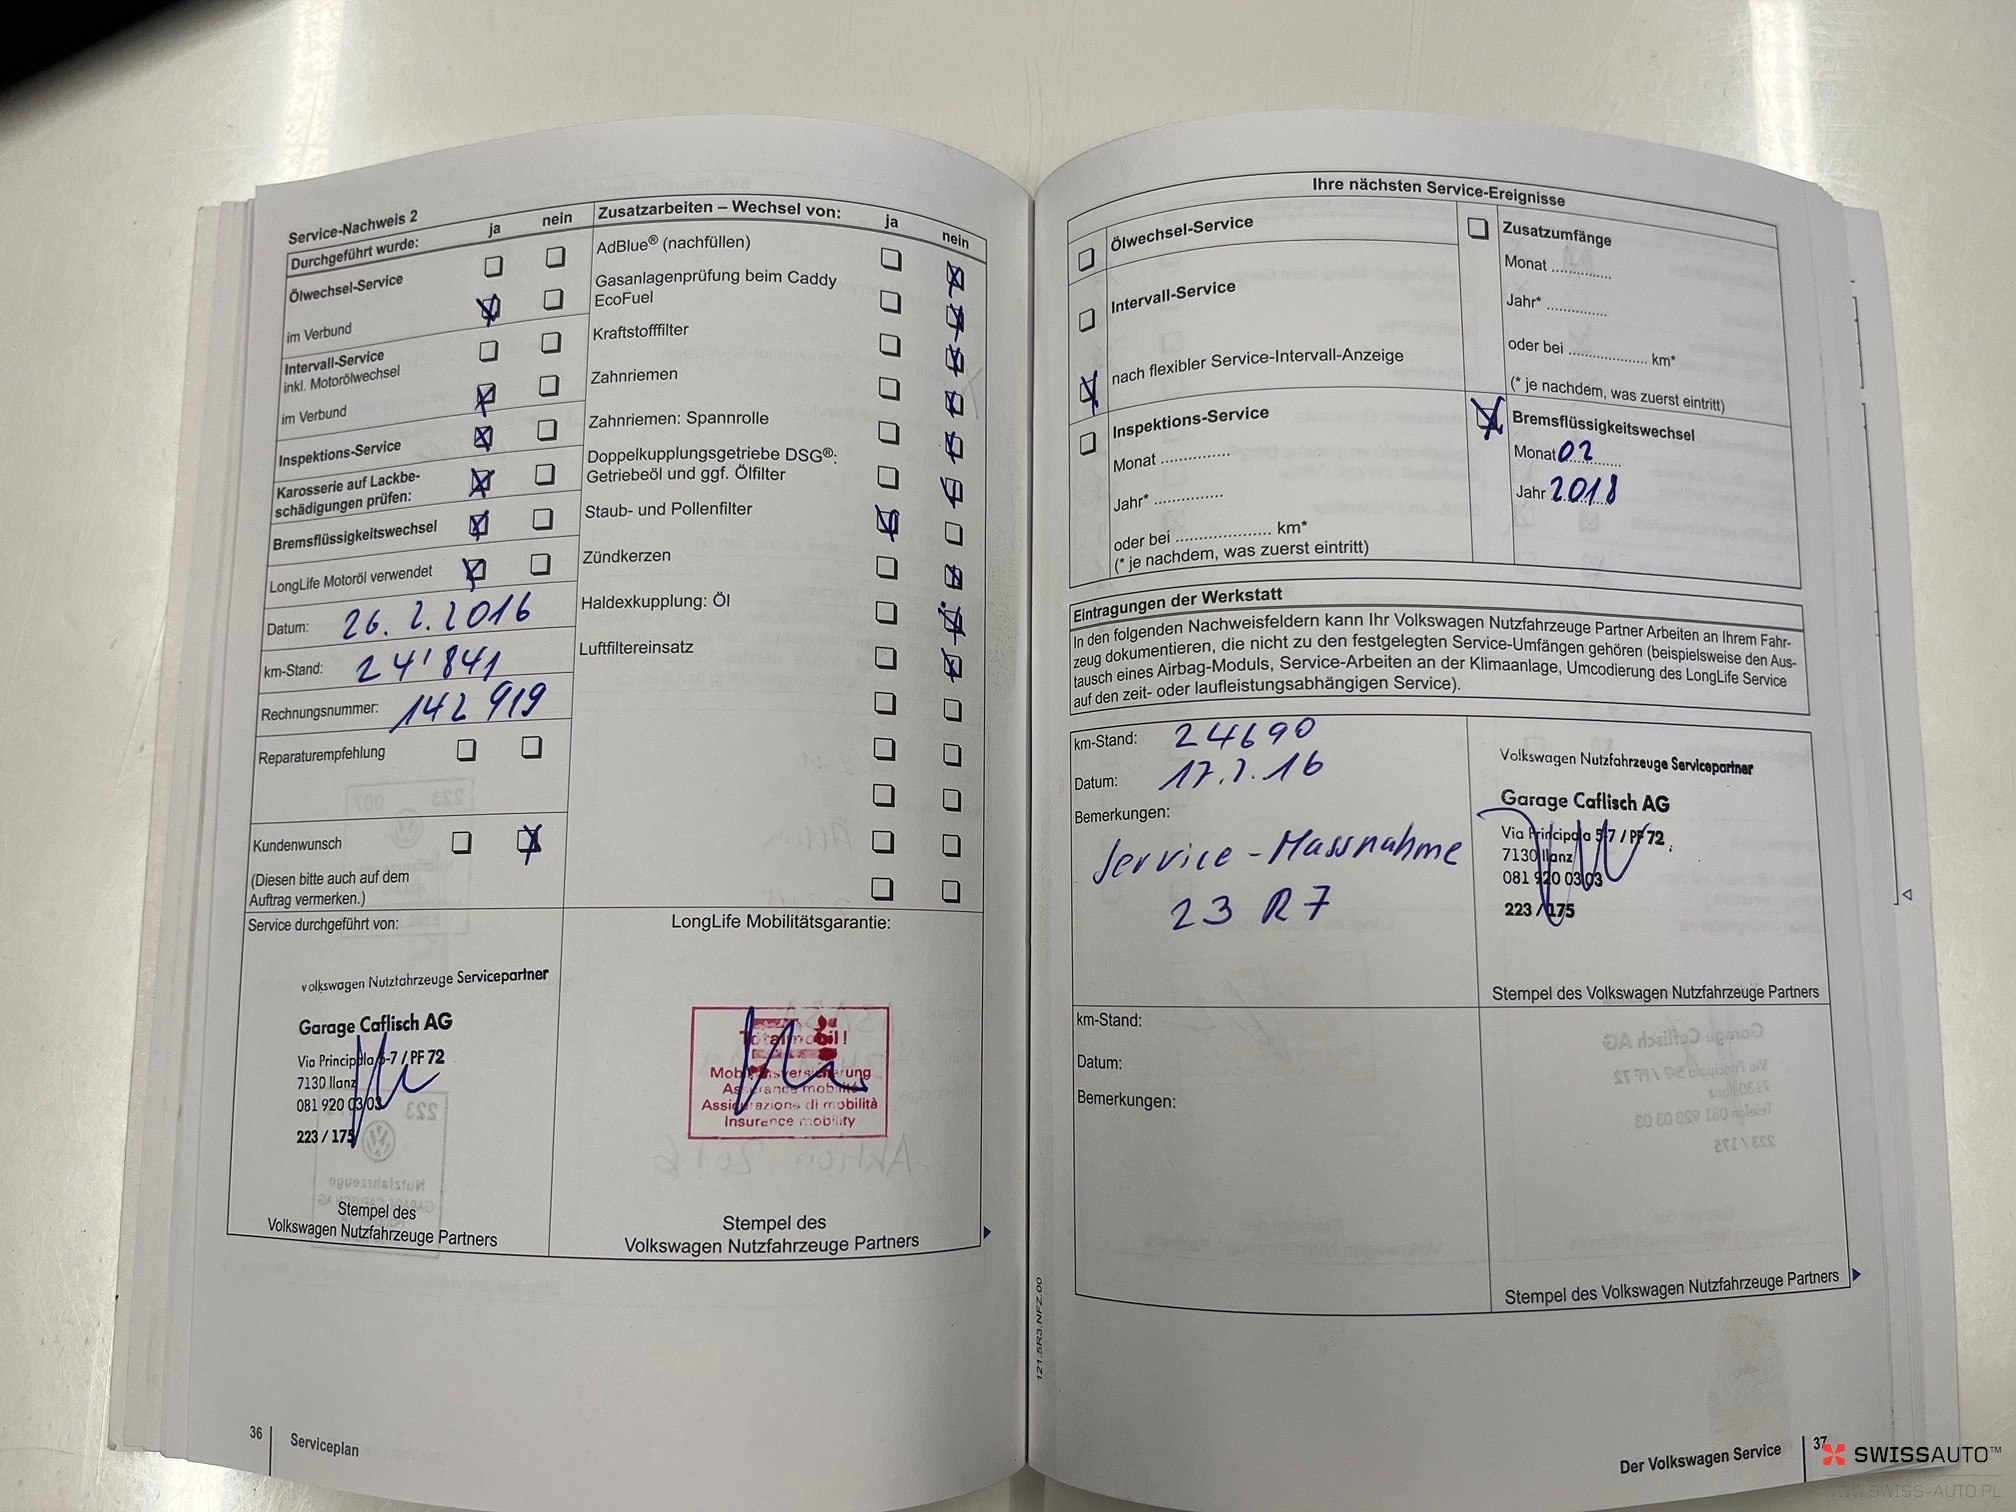 Service-Nachweis 2
Durchgeführt wurde: ja nein
Ölwechsel-Service
im Verbund
Intervall-Service
inkl. Motorölwechsel
im Verbund
Inspektions-Service
Karosserie auf Lackbe-
schädigungen prüfen:
Bremsflüssigkeitswechsel
LongLife Motoröl verwendet
Datum: 26. 2. 2016
km-Stand: 24'841
Rechnungsnummer: 142 919
Reparaturempfehlung
Kundenwunsch
(Diesen bitte auch auf dem
Auftrag vermerken.)
Zusatzarbeiten – Wechsel von: ja nein
AdBlue® (nachfüllen)
Gasanlagenprüfung beim Caddy
EcoFuel
Kraftstofffilter
Zahnriemen
Zahnriemen: Spannrolle
Doppelkupplungsgetriebe DSG®:
Getriebeöl und ggf. Ölfilter
Staub- und Pollenfilter
Zündkerzen
Haldexkupplung: Öl
Luftfiltereinsatz
Service durchgeführt von:
Volkswagen Nutzfahrzeuge Servicepartner
Garage Caflisch AG
Via Principala 5-7 / PF 72
7130 Ilanz
081 920 03 03
223 / 175
Stempel des
Volkswagen Nutzfahrzeuge Partners
LongLife Mobilitätsgarantie:
Totalmobil!
Mobilitätsversicherung
Assurance mobilité
Assicurazione di mobilità
Insurance mobility
Stempel des
Volkswagen Nutzfahrzeuge Partners
36 Serviceplan
Ihre nächsten Service-Ereignisse
Ölwechsel-Service
Intervall-Service
nach flexibler Service-Intervall-Anzeige
Inspektions-Service
Monat ..............
Jahr* ..............
oder bei ................... km*
(* je nachdem, was zuerst eintritt)
Zusatzumfänge
Monat ............
Jahr* ............
oder bei ................ km*
(* je nachdem, was zuerst eintritt)
Bremsflüssigkeitswechsel
Monat 02
Jahr 2018
Eintragungen der Werkstatt
In den folgenden Nachweisfeldern kann Ihr Volkswagen Nutzfahrzeuge Partner Arbeiten an Ihrem Fahr-
zeug dokumentieren, die nicht zu den festgelegten Service-Umfängen gehören (beispielsweise den Aus-
tausch eines Airbag-Moduls, Service-Arbeiten an der Klimaanlage, Umcodierung des LongLife Service
auf den zeit- oder laufleistungsabhängigen Service).
km-Stand: 24690
Datum: 17.2.16
Bemerkungen:
Service-Massnahme
23 R7
Volkswagen Nutzfahrzeuge Servicepartner
Garage Caflisch AG
Via Principala 5-7 / PF 72
7130 Ilanz
081 920 03 03
223 / 175
Stempel des Volkswagen Nutzfahrzeuge Partners
km-Stand:
Datum:
Bemerkungen:
Stempel des Volkswagen Nutzfahrzeuge Partners
121.5R3.NFZ.00
Der Volkswagen Service 37
SWISSAUTO™
WWW.SWISS-AUTO.PL